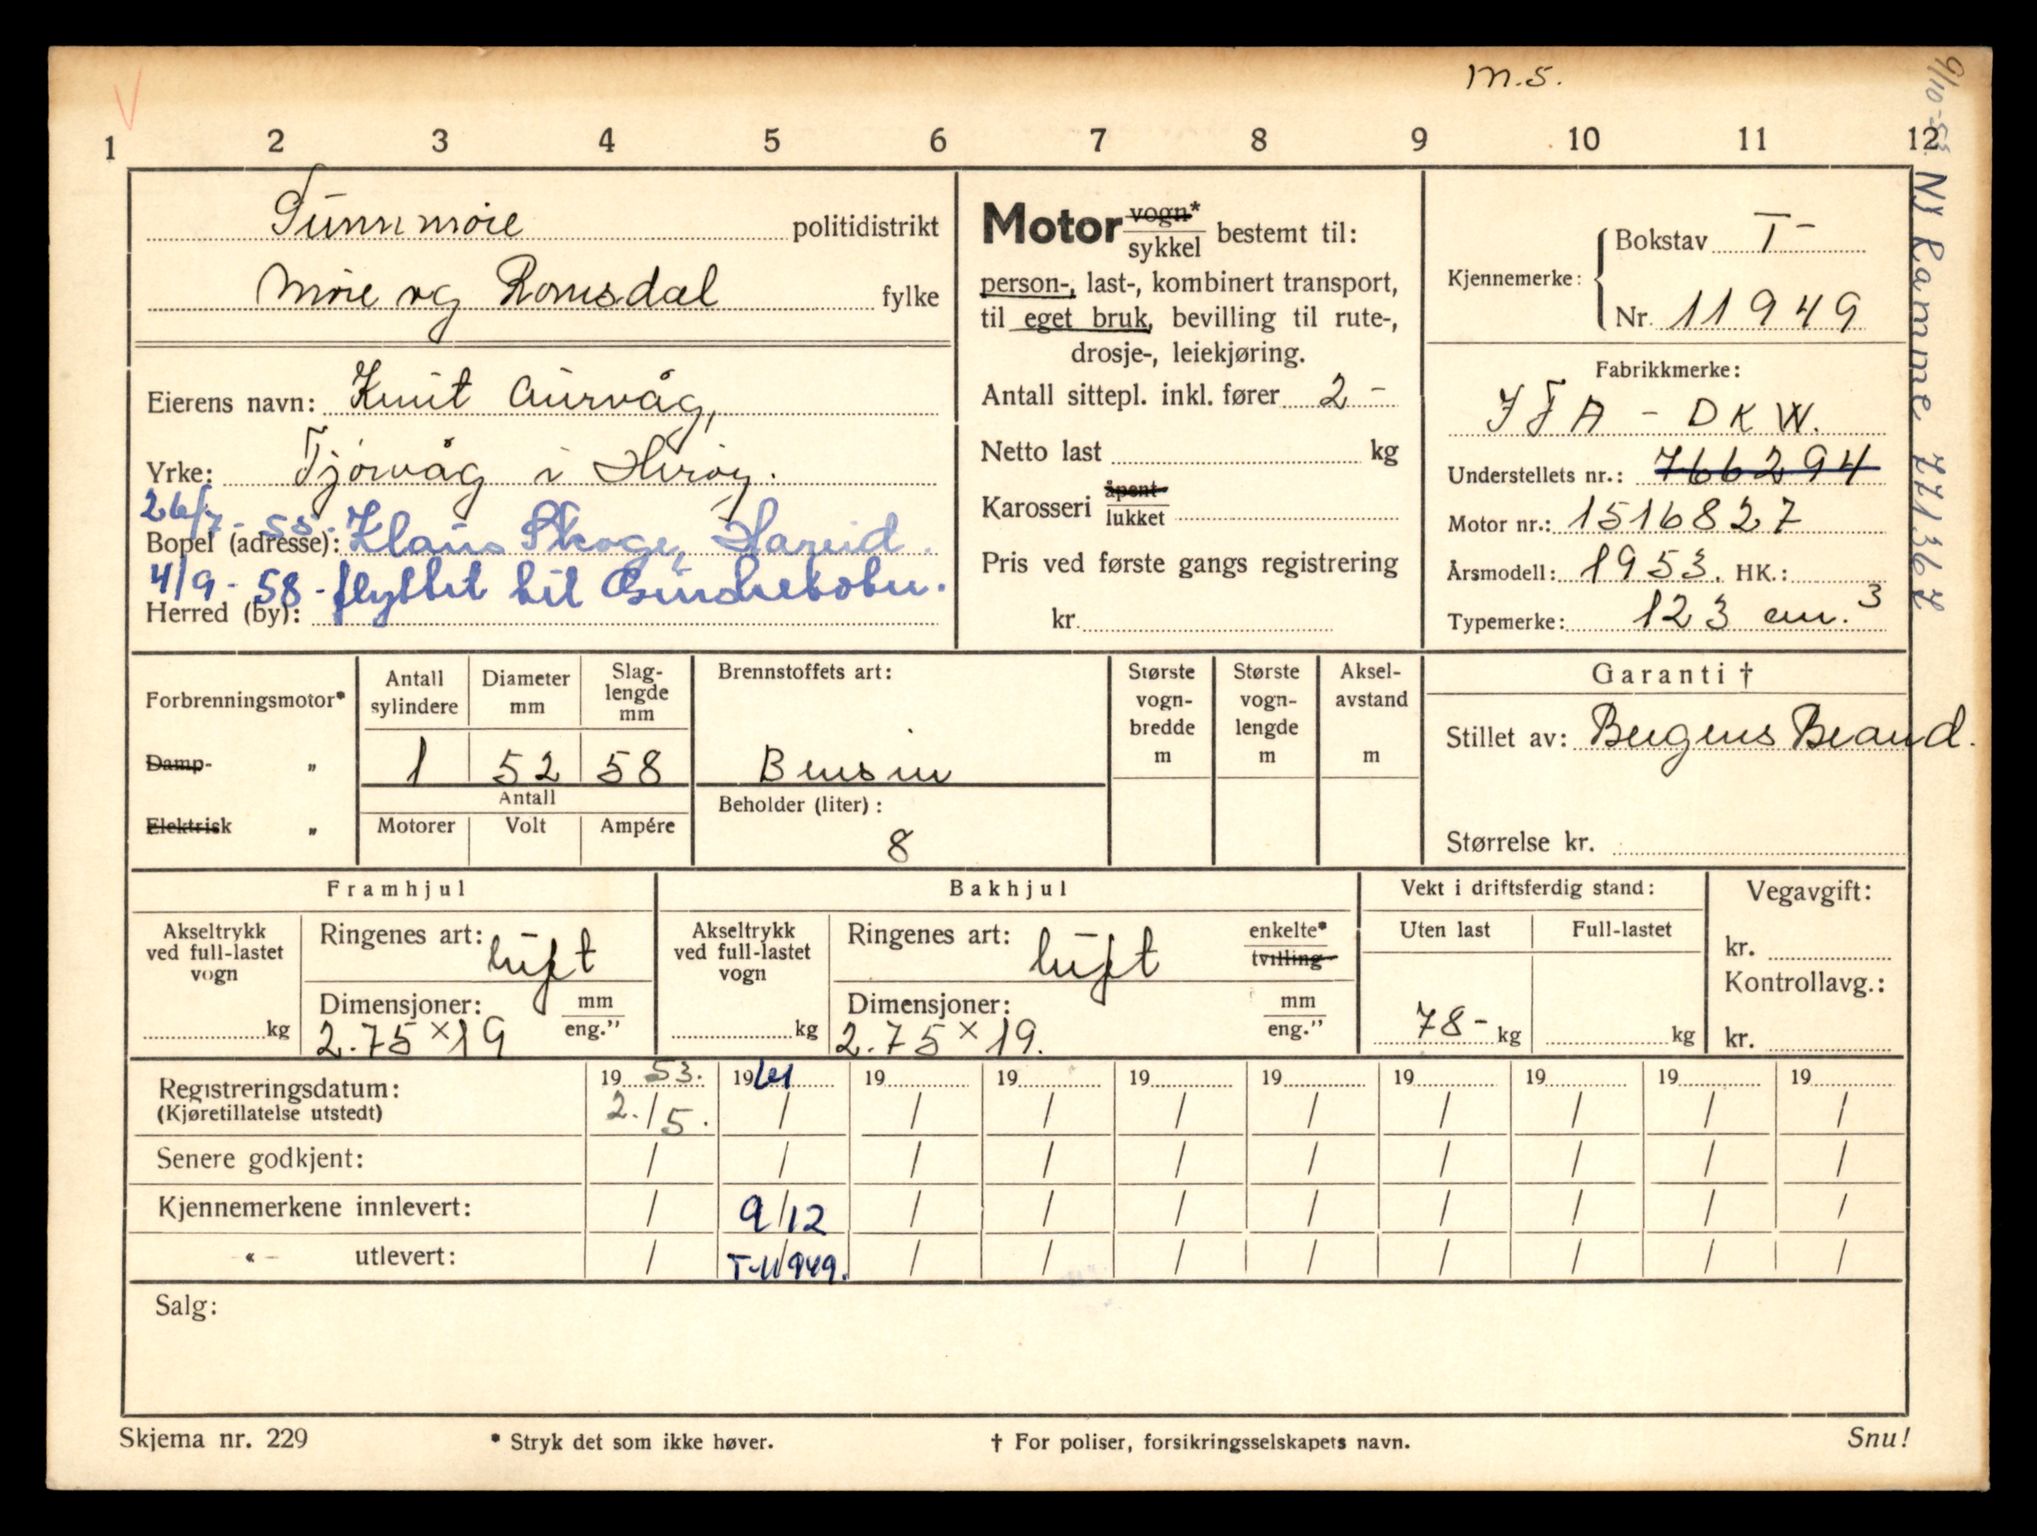 m.s.
1 2 3 4 5 6 7 8 9 10 11 12
Sunnmøre politidistrikt
Møre og Romsdal fylke
Eierens navn: Knut Aurvåg,
Yrke: Tjørvåg i Herøy.
26/7-55-
Bopel (adresse): Klaus Skoge, Hareid.
4/9-58- flyttet hit
Herred (by):
Motor vogn*
sykkel bestemt til:
person-, last-, kombinert transport,
til eget bruk, bevilling til rute-,
drosje-, leiekjøring.
Antall sittepl. inkl. fører 2 -
Netto last kg
Karosseri åpent
lukket
Pris ved første gangs registrering
kr.
Kjennemerke: Bokstav T-
Nr. 11949
Fabrikkmerke:
IFA - DKW.
Understellets nr.: 766294
Motor nr.: 1516827
Årsmodell: 1953. HK.:
Typemerke: 123 cm.³
9/10-53. Ny Ramme 771367
Forbrenningsmotor*
Damp- „
Elektrisk „
Antall sylindere
Diameter mm
Slag-lengde mm
1 52 58
Antall
Motorer Volt Ampére
Brennstoffets art:
Bensin
Beholder (liter):
8
Største vogn-bredde m
Største vogn-lengde m
Aksel-avstand m
Garanti †
Stillet av: Bergens Brand.
Størrelse kr.
Framhjul
Akseltrykk ved full-lastet vogn
kg
Ringenes art: luft
Dimensjoner: mm
2.75 x 19 eng.”
Bakhjul
Akseltrykk ved full-lastet vogn
kg
Ringenes art: luft enkelte*
tvilling
Dimensjoner: mm
2.75 x 19. eng.”
Vekt i driftsferdig stand:
Uten last Full-lastet
78- kg kg
Vegavgift:
kr.
Kontrollavg.:
kr.
Registreringsdatum: 19 53. 19 61 19 19 19 19 19 19 19 19
(Kjøretillatelse utstedt) 2./5. / / / / / / / / /
Senere godkjent: / / / / / / / / / /
Kjennemerkene innlevert: / 9/12 / / / / / / / /
« – utlevert: / T-11949. / / / / / / / /
Salg:
Skjema nr. 229
* Stryk det som ikke høver.
† For poliser, forsikringsselskapets navn.
Snu!